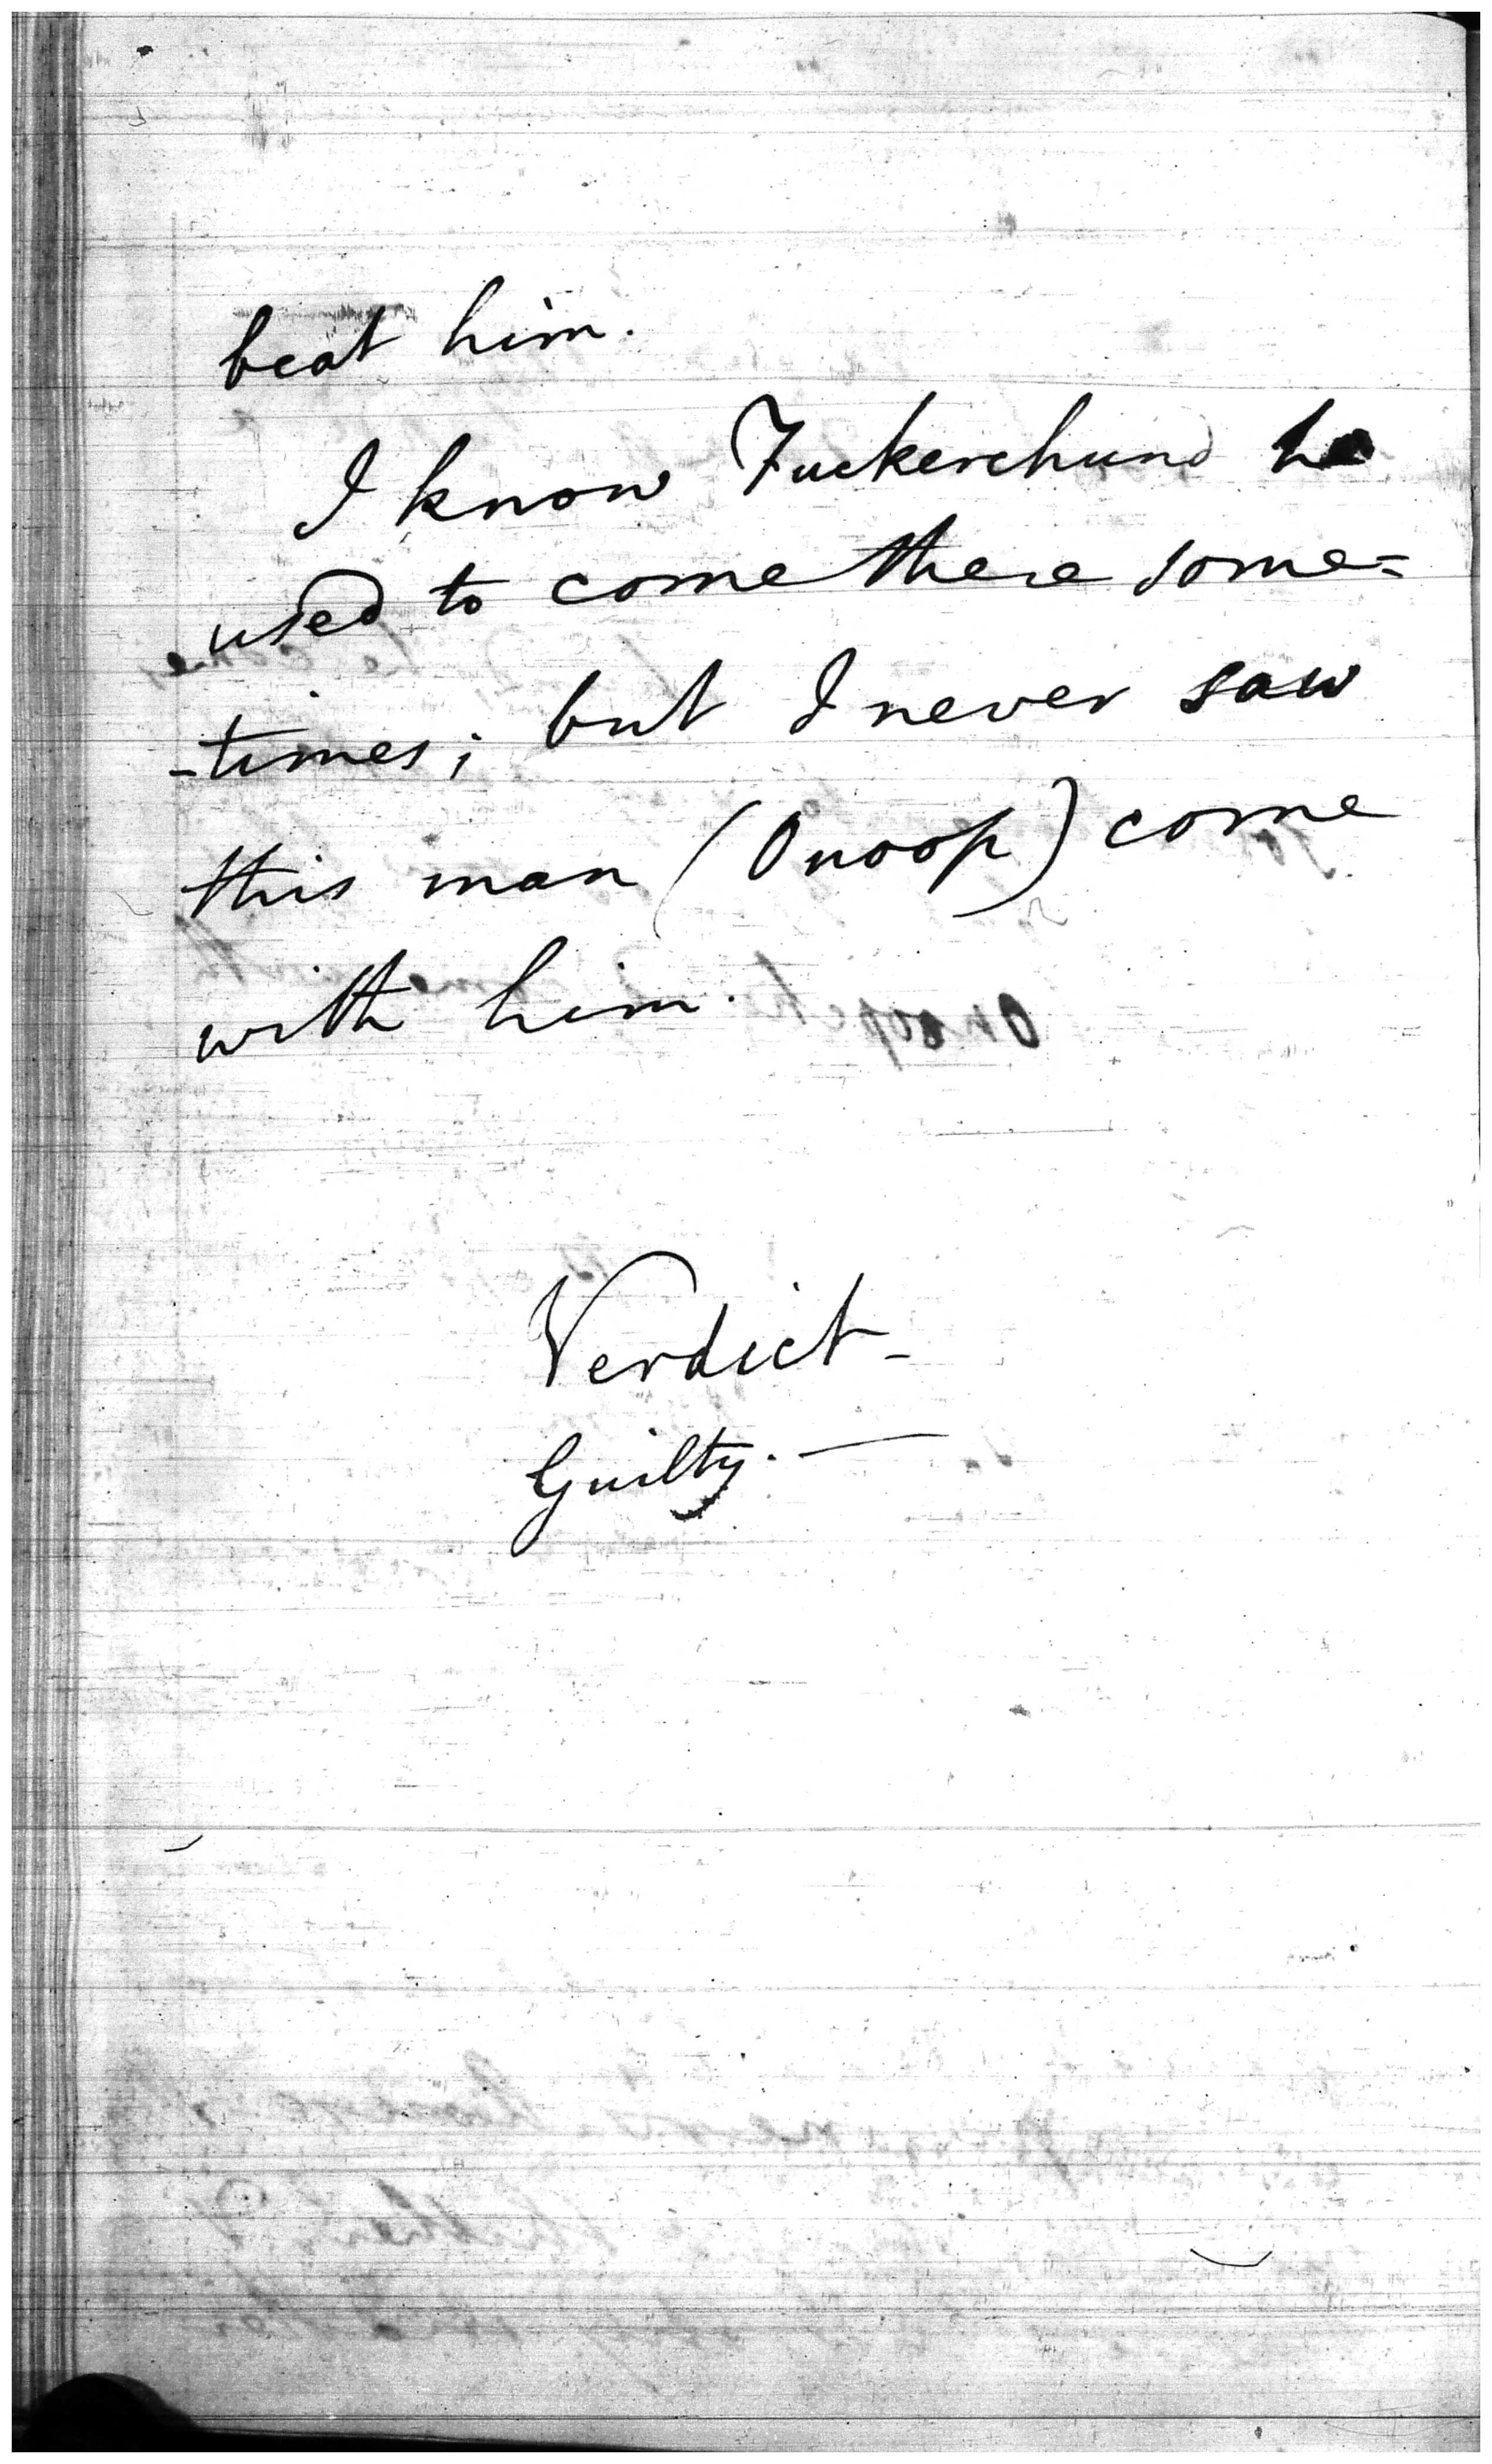 beat him.
I know Fuckerchund he
used to come there some=
-times; but I never saw
this man (Onoop) come
with him.
Verdict-
Guilty. —